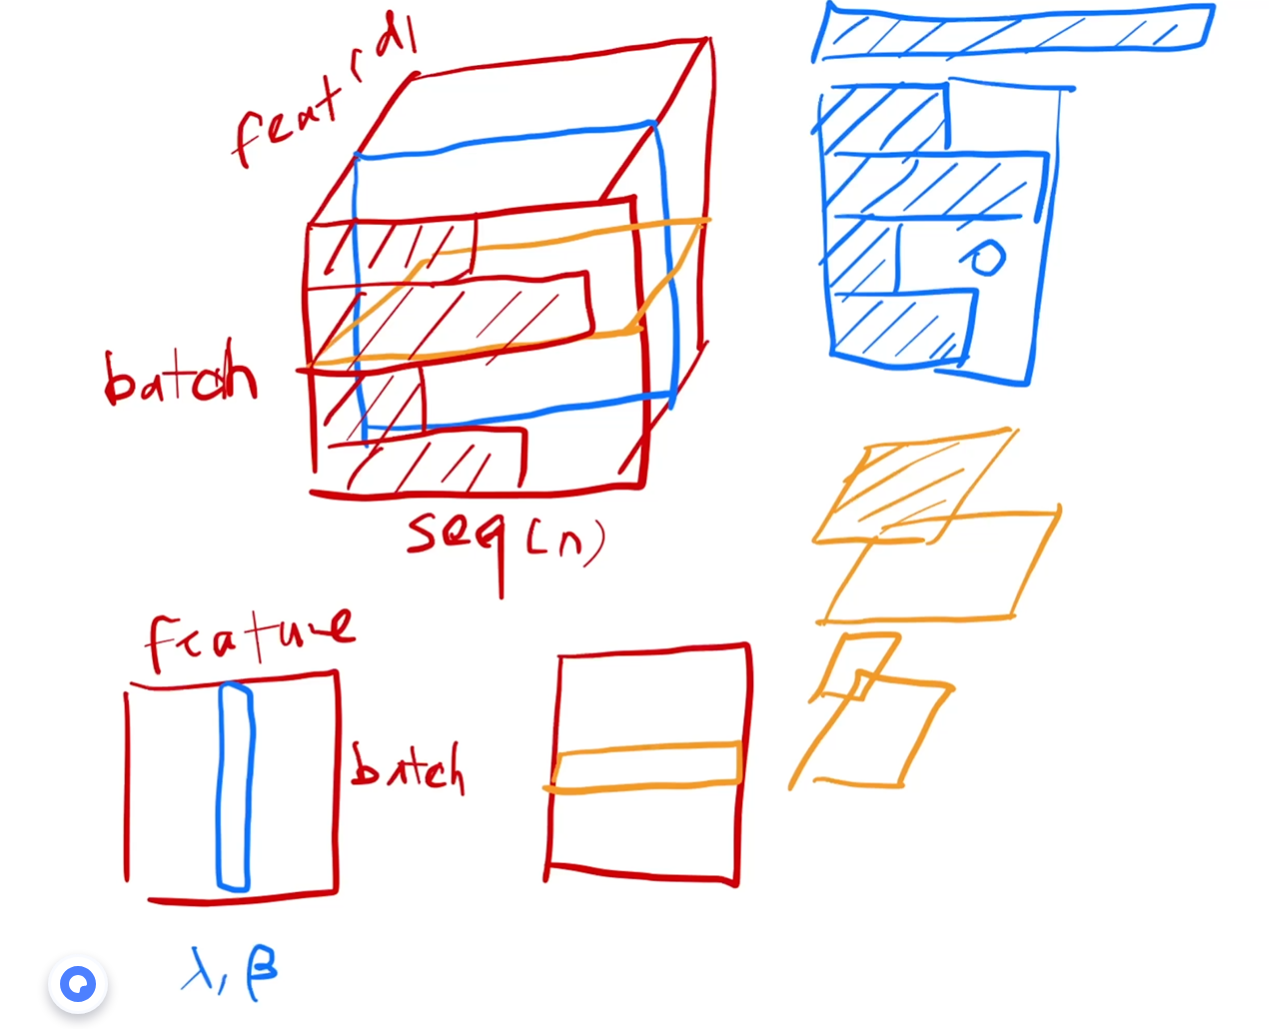 feat (d)
batch
seq (n)
feature
batch
0
λ, β